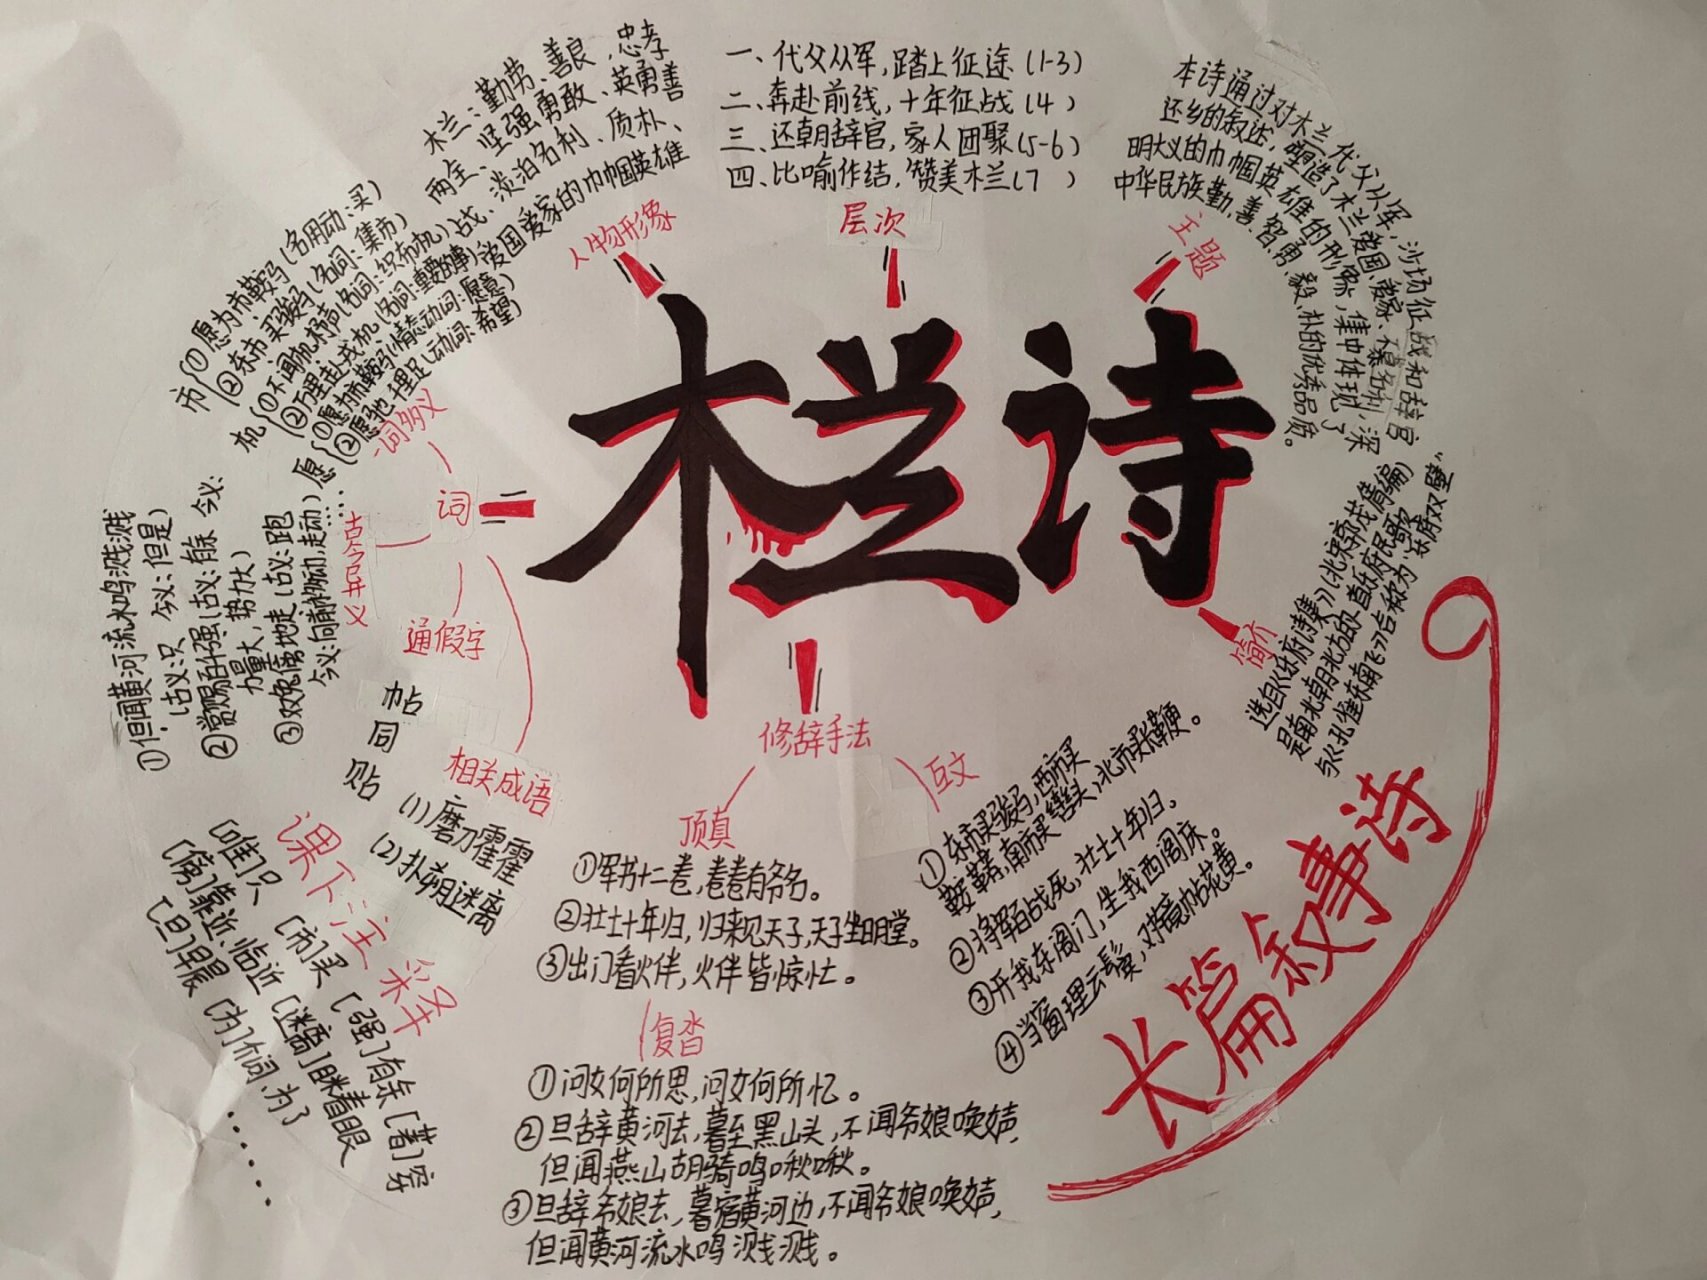 木兰诗
人物形象
木兰：勤劳、善良、忠孝
两全、坚强勇敢、英勇善
战、淡泊名利、质朴、
爱国爱家的巾帼英雄
层次
一、代父从军，踏上征途（1-3）
二、奔赴前线，十年征战（4）
三、还朝辞官，家人团聚（5-6）
四、比喻作结，赞美木兰（7）
主题
本诗通过对木兰代父从军，沙场征战和辞官
还乡的叙述，塑造了木兰爱国、爱家、不慕名利，深
明大义的巾帼英雄的形象，集中体现了
中华民族勤、善、智、勇、毅、朴的优秀品质。
简介
选自《乐府诗集》（北宋郭茂倩编）
是南北朝时北方的一首乐府民歌
与《孔雀东南飞》合称为“乐府双璧”
长篇叙事诗
词
一词多义
市 ①愿为市鞍马（名用动：买）
②东市买骏马（名词：集市）
机 ①不闻机杼声（名词：织布机）
②万里赴戎机（名词：重要的事）
愿 ①愿为市鞍马（情态动词：愿意）
②愿驰千里足（动词：希望）
古今异义
①但闻黄河流水鸣溅溅
（古义：只 今义：但是）
②赏赐百千强（古义：有余 今义：
力量大，势力大）
③双兔傍地走（古义：跑
今义：向前移动，走动）
……
通假字
帖
同
贴
相关成语
（1）磨刀霍霍
（2）扑朔迷离
课下注释
［唯］只 ［市］买 ［强］有余 ［著］穿
［傍］靠近、临近 ［迷离］眯着眼
［旦］早晨 ［为］介词、为了
……
修辞手法
顶真
①军书十二卷，卷卷有爷名。
②壮士十年归，归来见天子，天子坐明堂。
③出门看火伴，火伴皆惊忙。
互文
①东市买骏马，西市买
鞍鞯，南市买辔头，北市买长鞭。
②将军百战死，壮士十年归。
③开我东阁门，坐我西阁床。
④当窗理云鬓，对镜帖花黄。
复沓
①问女何所思，问女何所忆。
②旦辞黄河去，暮至黑山头，不闻爷娘唤女声，
但闻燕山胡骑鸣啾啾。
③旦辞爷娘去，暮宿黄河边，不闻爷娘唤女声，
但闻黄河流水鸣溅溅。